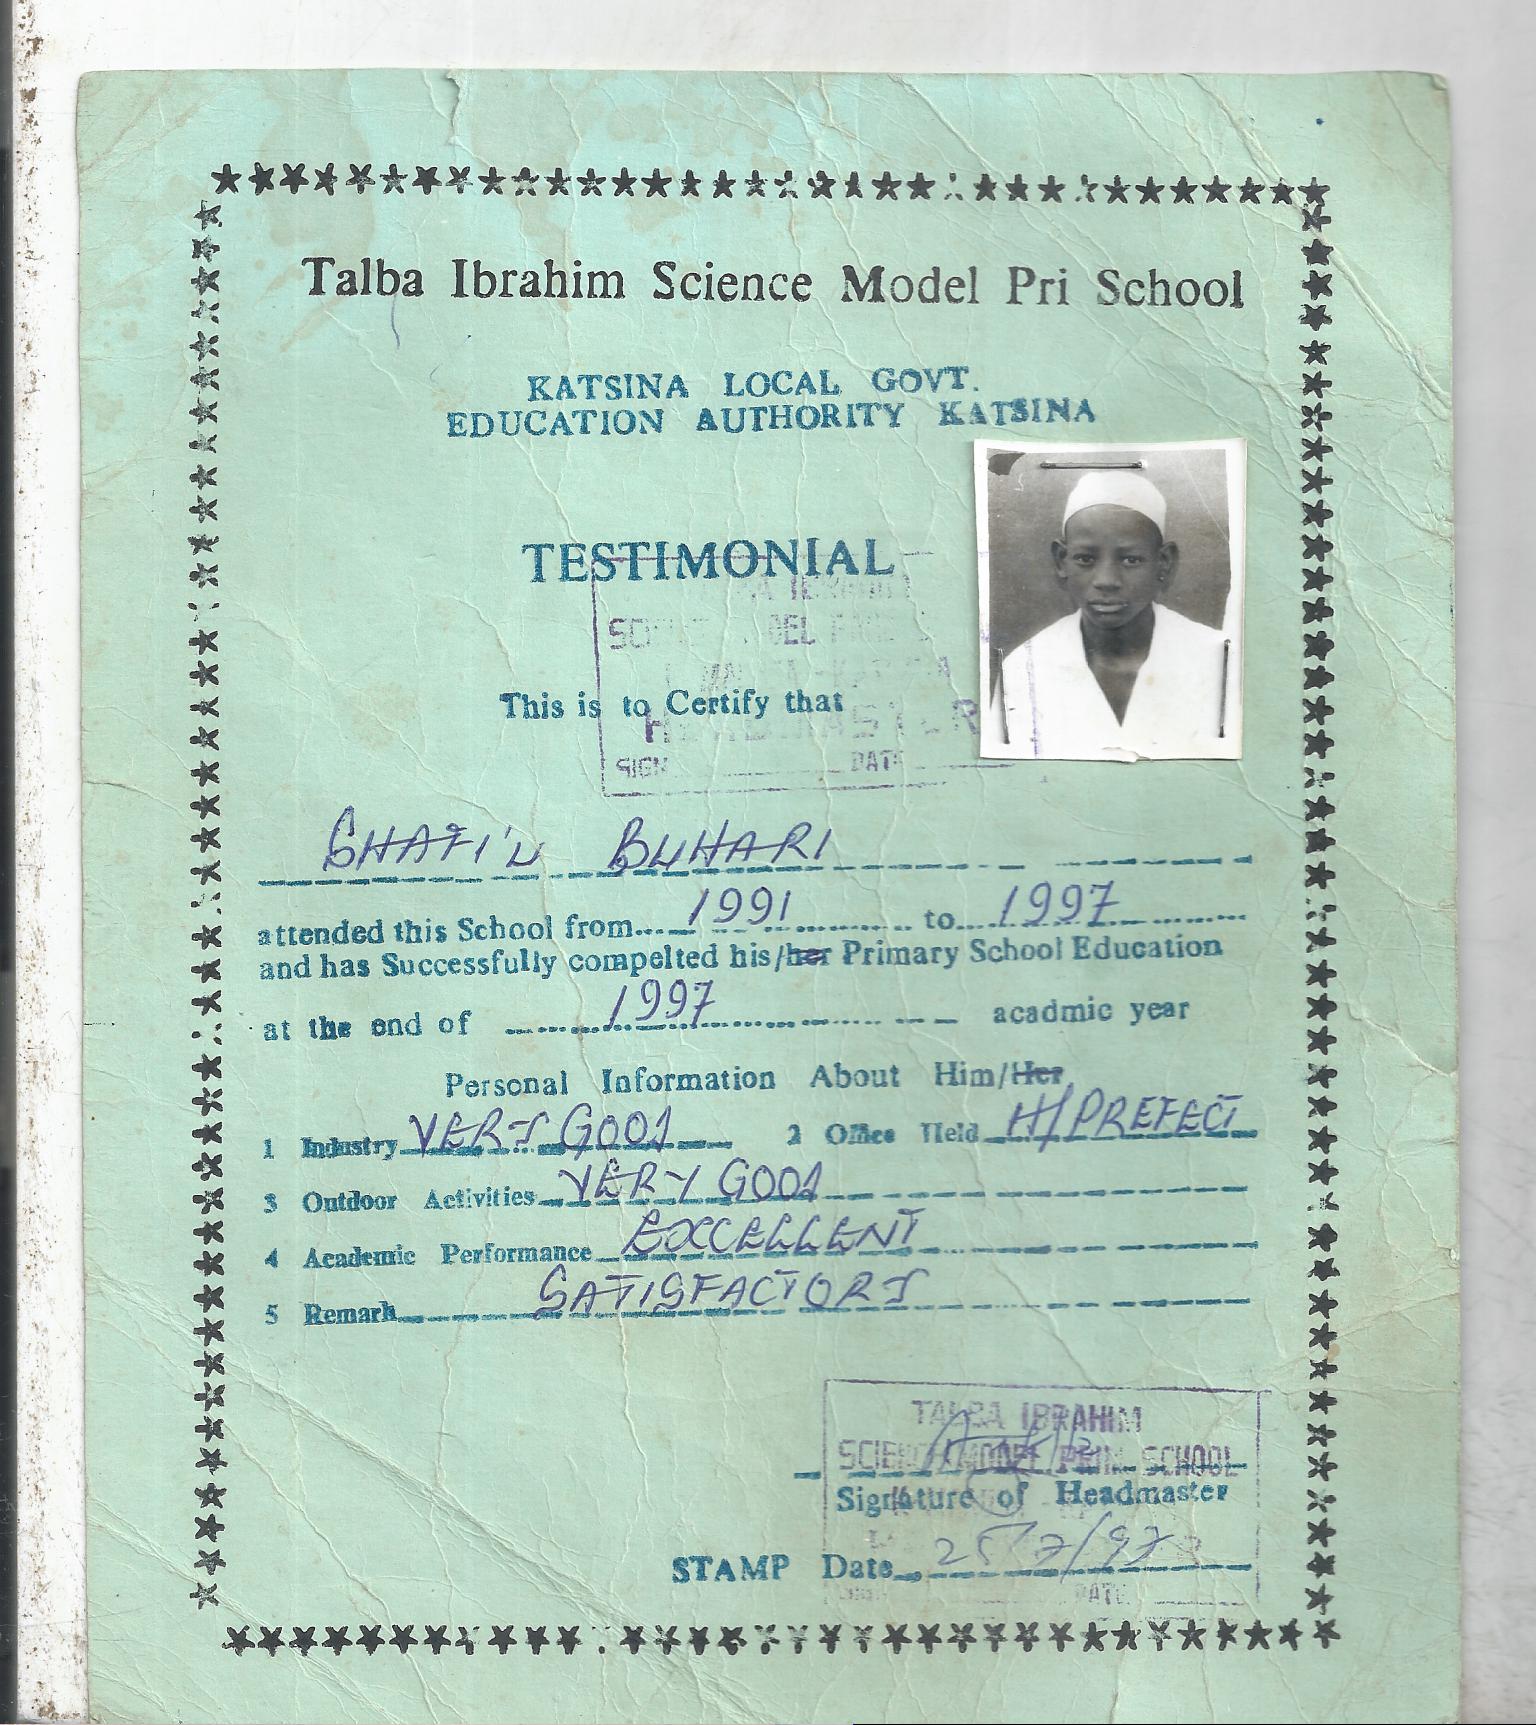 Talba Ibrahim Science Model Pri School
KATSINA LOCAL GOVT.
EDUCATION AUTHORITY KATSINA
TESTIMONIAL
This is to Certify that
HEADMASTER
SIGN DATE
SHAFI'U BUHARI
attended this School from 1991 to 1997
and has Successfully compelted his/her Primary School Education
at the end of 1997 acadmic year
Personal Information About Him/Her
1 Industry VERY GOOD 2 Office Held H/PREFECT
3 Outdoor Activities VERY GOOD
4 Academic Performance EXCELLENT
5 Remark SATISFACTORY
TALBA IBRAHIM
SCIENCE MODEL PRIM SCHOOL
Signature of Headmaster
STAMP Date 25/7/97
DATE